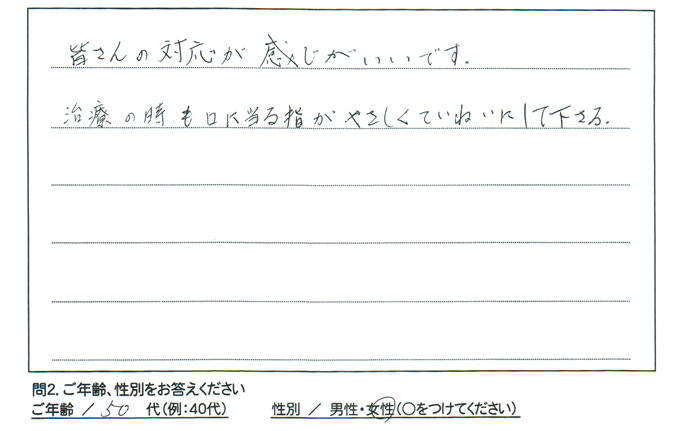 皆さんの対応が感じがいいです。
治療の時も口に当る指がやさしくていねいにして下さる。
問2. ご年齢、性別をお答えください
ご年齢 / 50 代(例:40代) 性別 / 男性・女性(○をつけてください)